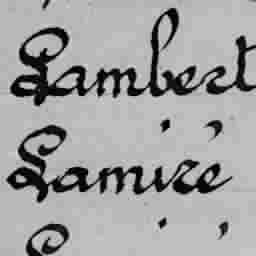 Lambert
Lamiré